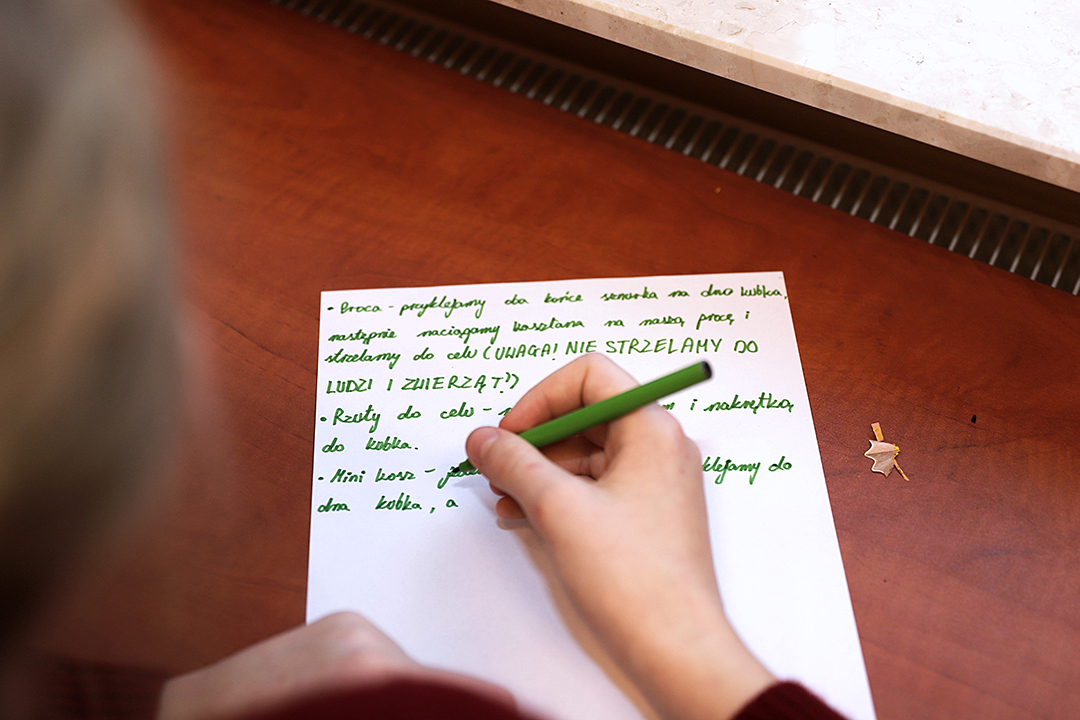 • Proca - przyklejamy oba końce sznurka na dno kubka,
następnie naciągamy kasztana na naszą procę i
strzelamy do celu (UWAGA! NIE STRZELAMY DO
LUDZI I ZWIERZĄT!)
• Rzuty do celu - i nakrętką
do kubka.
• Mini kosz - do
dna kubka, a